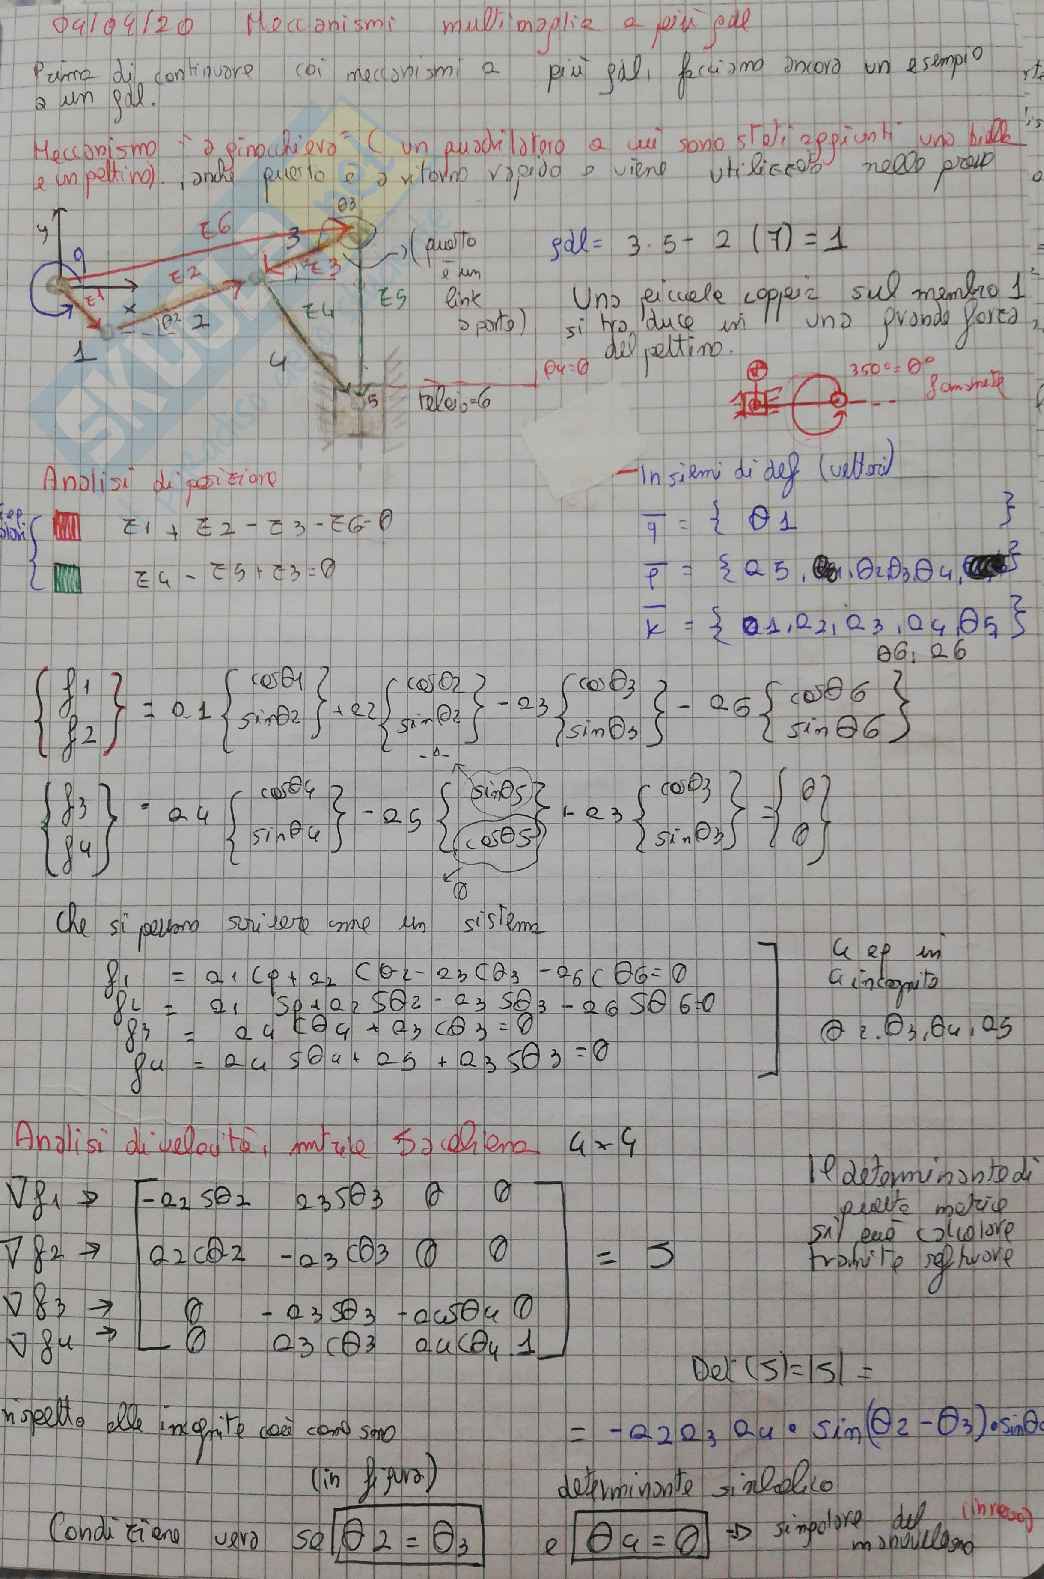 04/04/20 Meccanismi multimaglia a più gdl
Prima di continuare coi meccanismi a più gdl, facciamo ancora un esempio
a un gdl.
Meccanismo "a ginocchiera" (un quadrilatero a cui sono stati aggiunti una biella
e un pattino), anche questo è a ritorno rapido e viene utilizzato nelle presse
y q z6 θ3 3
z1 z2 z3 (questo
x θ2 2 z4 z5 è un
1 4 link
a parte)
5 telaio=6 θ4=0
gdl= 3·5-2(7)=1
Una piccola coppia sul membro 1
si traduce in una grande forza
del pattino.
360°=0°
Analisi di posizione
z1+z2-z3-z6=0
z4-z5+z3=0
-Insiemi di def (vettori)
q = { θ1 }
p = { a5, θ2, θ3, θ4, }
k = { a1, a2, a3, a4, θ5, }
θ6, a6
{f1 f2} = a1 {cosθ1 sinθ2} + a2 {cosθ2 sinθ2} - a3 {cosθ3 sinθ3} - a6 {cosθ6 sinθ6}
{f3 f4} = a4 {cosθ4 sinθ4} - a5 {sinθ5 cosθ5} + a3 {cosθ3 sinθ3} = {0 0}
0
che si possono scrivere come un sistema
f1 = a1 Cφ + a2 Cθ2 - a3 Cθ3 - a6 Cθ6=0
f2 = a1 Sφ + a2 Sθ2 - a3 Sθ3 - a6 Sθ6=0
f3 = a4 Cθ4 + a3 Cθ3 =0
f4 = a4 Sθ4 + a5 + a3 Sθ3 =0
4 eq in
4 incognite
θ2, θ3, θ4, a5
Analisi di velocità, matrice Jacobiana 4x4
∇f1 → -a2Sθ2 a3Sθ3 0 0
∇f2 → a2Cθ2 -a3Cθ3 0 0 = J
∇f3 → 0 -a3Sθ3 -a4Sθ4 0
∇f4 → 0 a3Cθ3 a4Cθ4 1
Il determinante di
questa matrice
si può calcolare
tramite software
Det(J)=|J| =
rispetto alle incognite così come sono
(in figura)
= -a2 a3 a4 · sin(θ2-θ3)·sinθ
determinante simbolico
Condizione vera se θ2=θ3 e θ4=0 => singolare del (inverso)
manovellismo